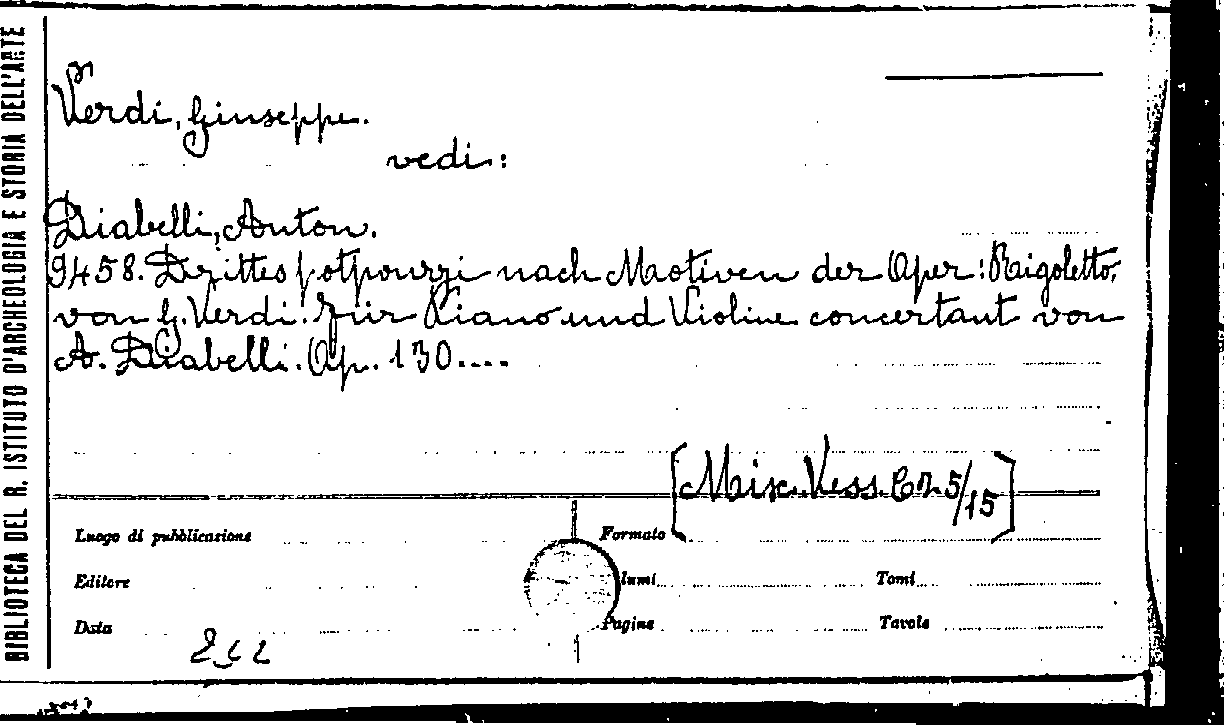 BIBLIOTECA DEL R. ISTITUTO D'ARCHEOLOGIA E STORIA DELL'ARTE
Verdi, Giuseppe.
vedi:
Diabelli, Anton.
9458. Drittes potpourri nach Motiven der Oper: Rigoletto,
von G. Verdi! Für Piano und Violine concertant von
A. Diabelli. Op. 130....
[Misc. Vess. 5/15]
Luogo di pubblicazione Formato
Editore lumi Tomi
Data Pagine Tavole